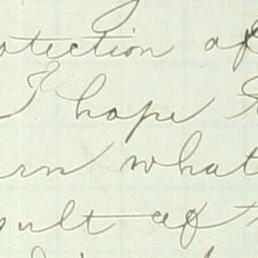 otection of
I hope
rn what
sult of